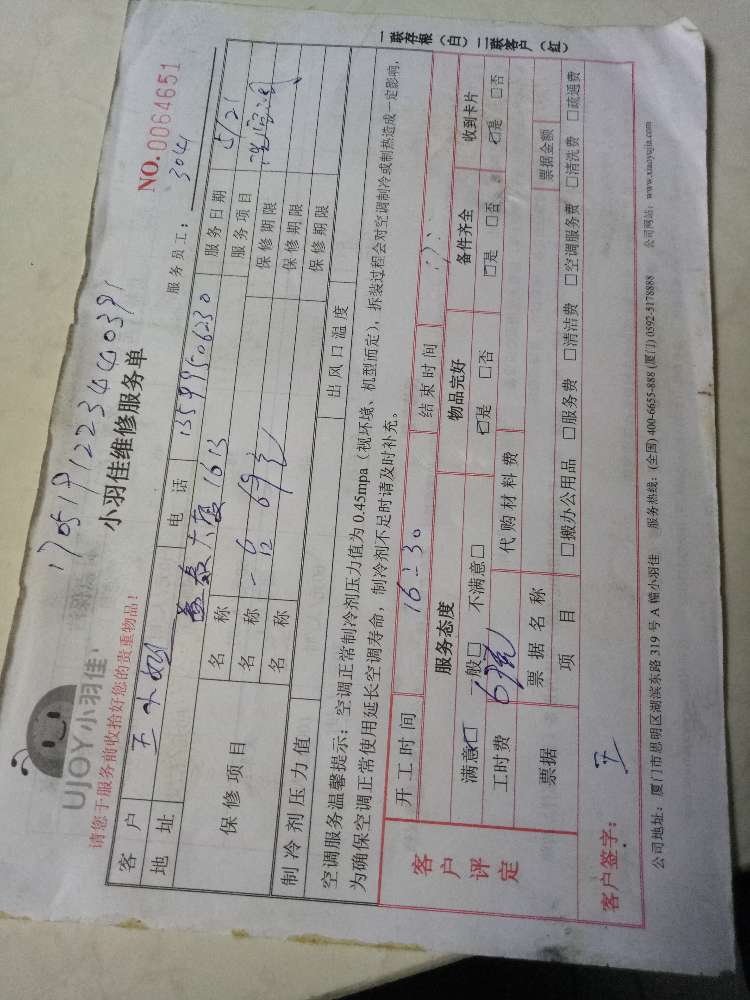 17051912234440391
UJOY小羽佳
小羽佳维修服务单
NO.0064651
请您于服务前收拾好您的贵重物品!
服务员工: 304
客户 王小姐 电话 13599506230 服务日期 5/21
地址 大厦1613 服务项目
保修项目 名称 一台 69元 保修期限
名称 保修期限
名称 保修期限
制冷剂压力值 出风口温度
空调服务温馨提示:空调正常制冷剂压力值为0.45mpa(视环境、机型而定),拆装过程会对空调制冷或制热造成一定影响,
为确保空调正常使用延长空调寿命,制冷剂不足时请及时补充。
客户评定
开工时间 16:30 结束时间 17:
服务态度 物品完好 备件齐全 收到卡片
满意☑ 一般□ 不满意□ ☑是 □否 □是 □否 ☑是 □否
工时费 69元 代购材料费
票据 票据名称 票据金额
项目 □搬办公用品 □服务费 □清洁费 □空调服务费 □清洗费 □疏通费
客户签字: 王
公司地址:厦门市思明区湖滨东路319号A幢小羽佳 服务热线:(全国)400-6655-888 (厦门)0592-5178888 公司网站:www.xiaoyujia.com
一联存根(白) 二联客户(红)